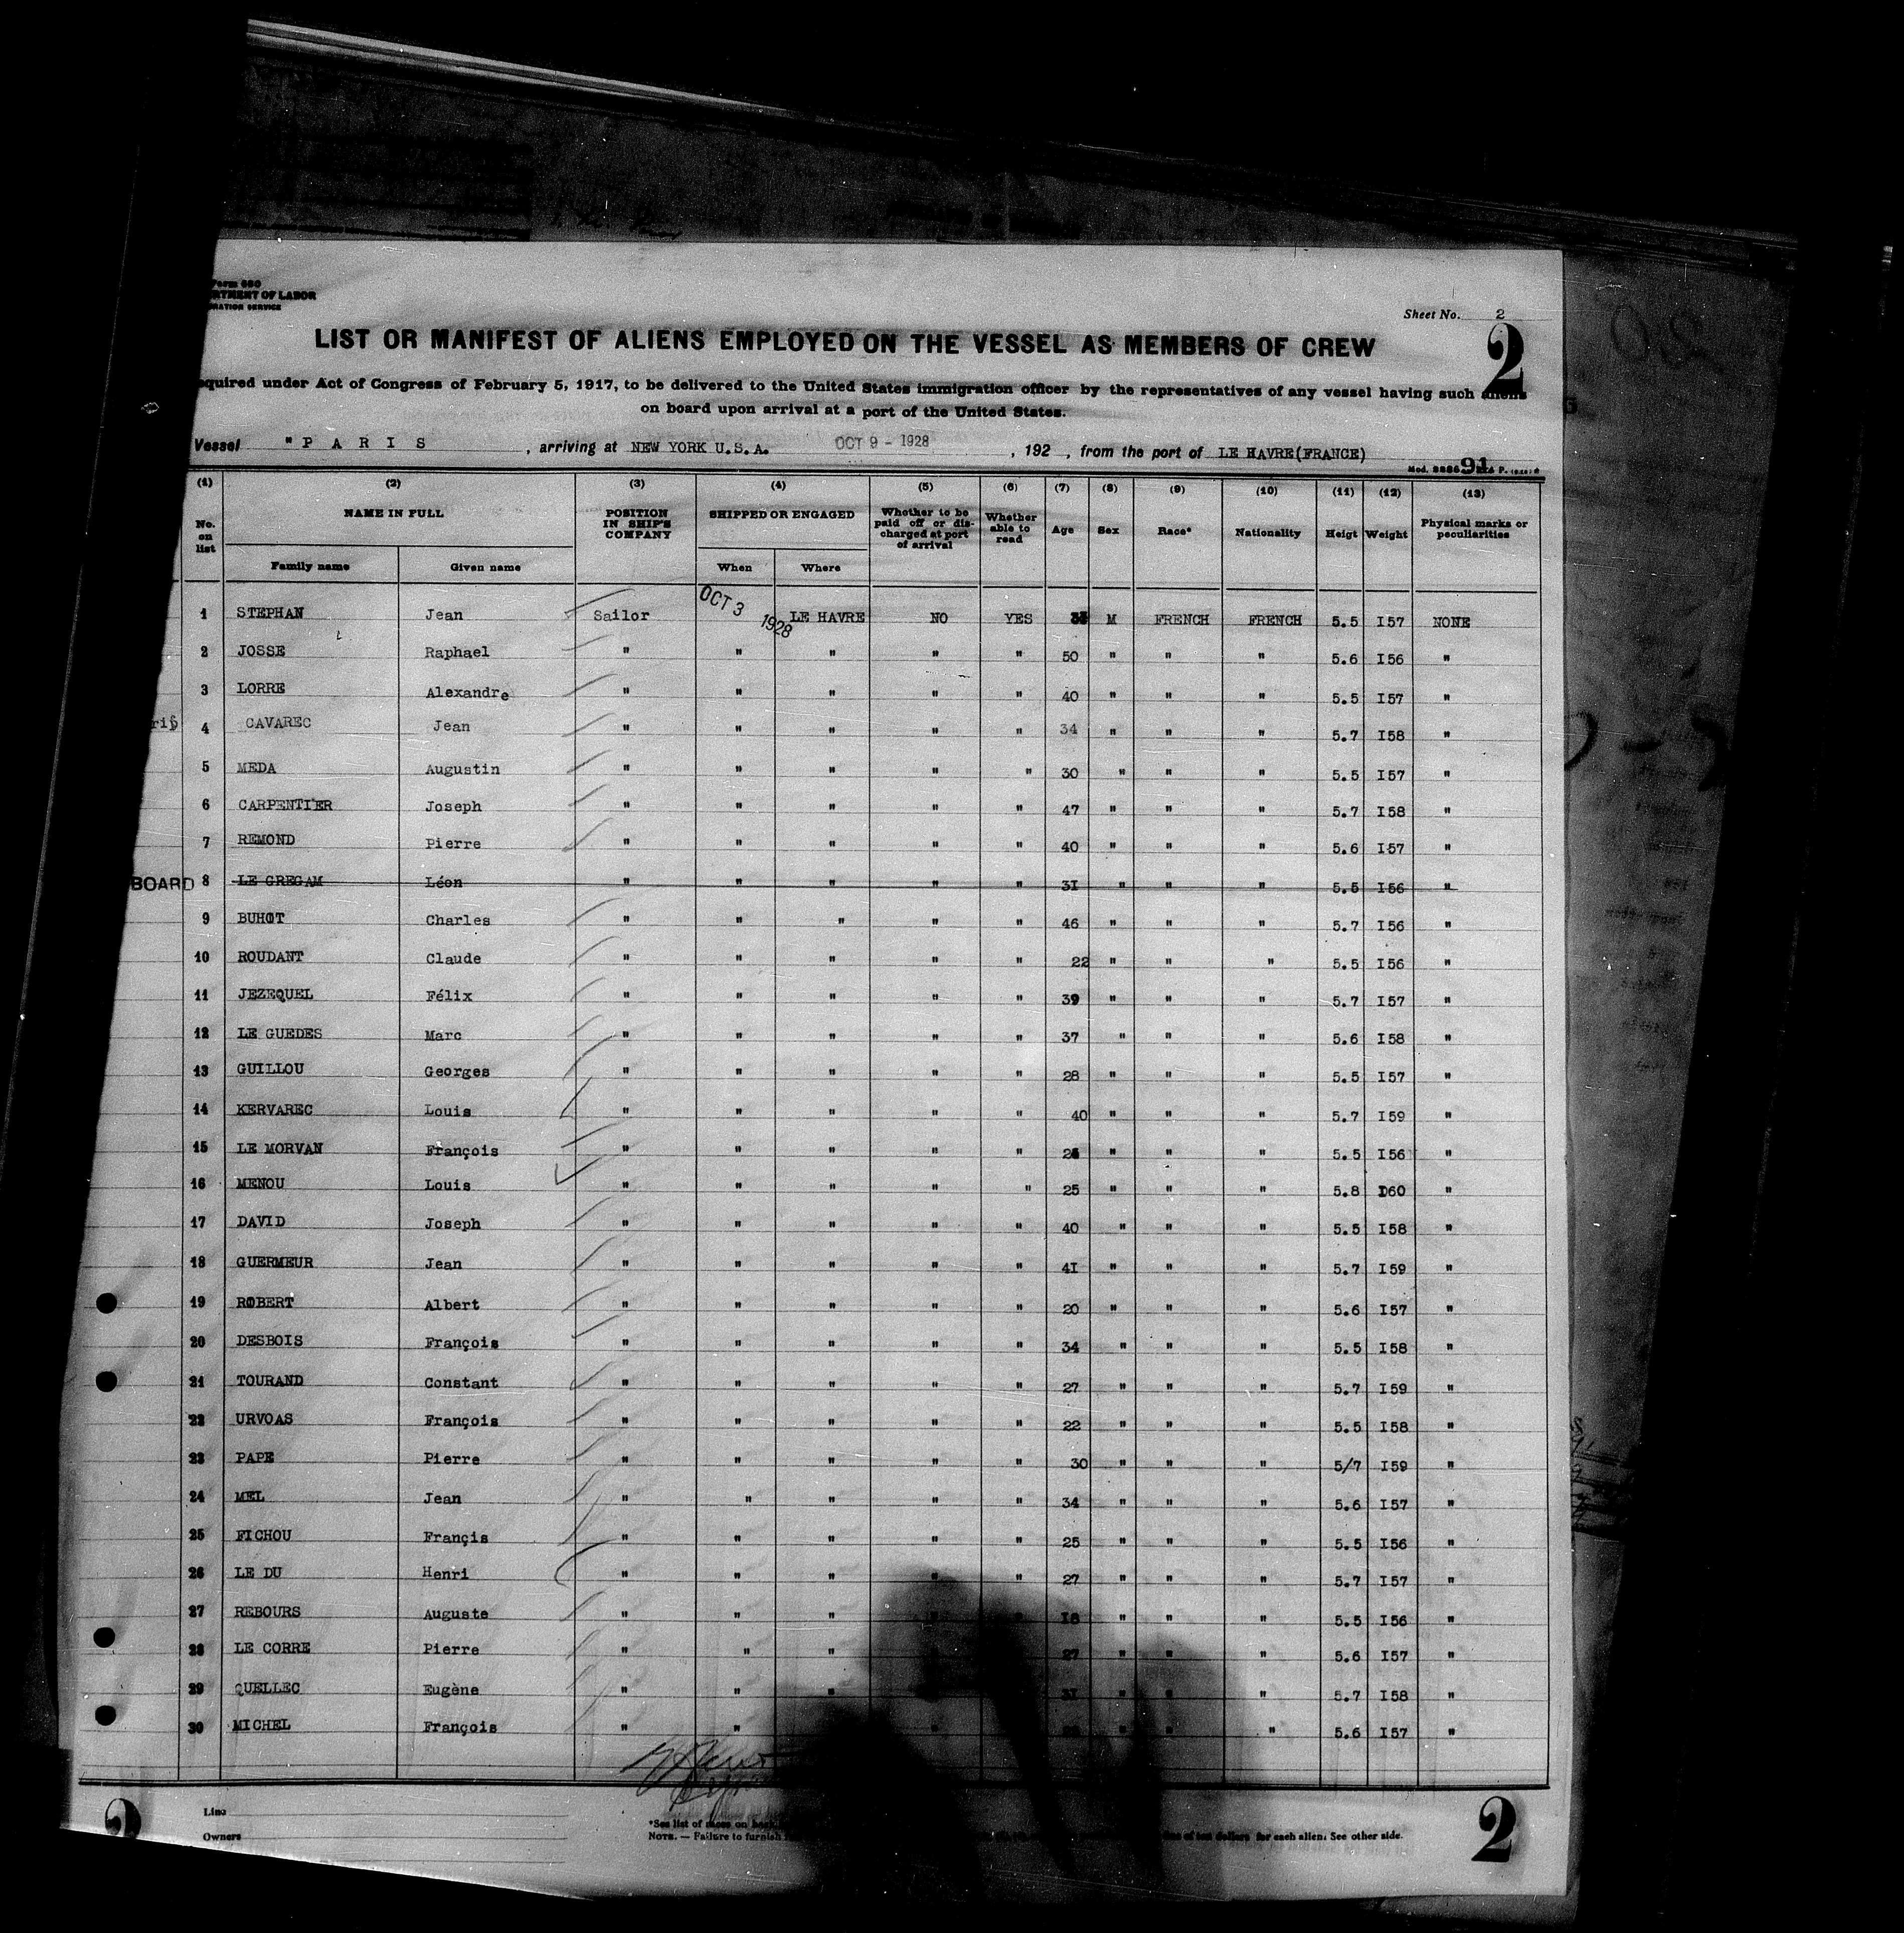 Form 680
RTMENT OF LABOR
RATION SERVICE
Sheet No. 2
2
LIST OR MANIFEST OF ALIENS EMPLOYED ON THE VESSEL AS MEMBERS OF CREW
equired under Act of Congress of February 5, 1917, to be delivered to the United States immigration officer by the representatives of any vessel having such aliens
on board upon arrival at a port of the United States.
Vessel "P A R I S , arriving at NEW YORK U.S.A. OCT 9 - 1928 , 192 , from the port of LE HAVRE(FRANCE)
91
(1) (2) (3) (4) (5) (6) (7) (8) (9) (10) (11) (12) (13)
No. on list NAME IN FULL POSITION IN SHIP'S COMPANY SHIPPED OR ENGAGED Whether to be paid off or discharged at port of arrival Whether able to read Age Sex Race* Nationality Heigt Weight Physical marks or peculiarities
Family name Given name When Where
1 STEPHAN Jean Sailor OCT 3 1928 LE HAVRE NO YES M FRENCH FRENCH 5.5 I57 NONE
2 JOSSE Raphael " " " " " 50 " " " 5.6 I56 "
3 LORRE Alexandre " " " " " 40 " " " 5.5 I57 "
4 CAVAREC Jean " " " " " 34 " " " 5.7 I58 "
5 MEDA Augustin " " " " " 30 " " " 5.5 I57 "
6 CARPENTIER Joseph " " " " " 47 " " " 5.7 I58 "
7 REMOND Pierre " " " " " 40 " " " 5.6 I57 "
BOARD 8 LE GREGAM Léon " " " " " 3I " " " 5.5 I56 "
9 BUHOT Charles " " " " " 46 " " " 5.7 I56 "
10 ROUDANT Claude " " " " " 22 " " " 5.5 I56 "
11 JEZEQUEL Félix " " " " " 39 " " " 5.7 I57 "
12 LE GUEDES Marc " " " " " 37 " " " 5.6 I58 "
13 GUILLOU Georges " " " " " 28 " " " 5.5 I57 "
14 KERVAREC Louis " " " " " 40 " " " 5.7 I59 "
15 LE MORVAN François " " " " " " " " 5.5 I56 "
16 MENOU Louis " " " " " 25 " " " 5.8 I60 "
17 DAVID Joseph " " " " " 40 " " " 5.5 I58 "
18 GUERMEUR Jean " " " " " 4I " " " 5.7 I59 "
19 ROBERT Albert " " " " " 20 " " " 5.6 I57 "
20 DESBOIS François " " " " " 34 " " " 5.5 I58 "
21 TOURAND Constant " " " " " 27 " " " 5.7 I59 "
22 URVOAS François " " " " " 22 " " " 5.5 I58 "
23 PAPE Pierre " " " " " 30 " " " 5/7 I59 "
24 MEL Jean " " " " " 34 " " " 5.6 I57 "
25 FICHOU Françis " " " " " 25 " " " 5.5 I56 "
26 LE DU Henri " " " " " 27 " " " 5.7 I57 "
27 REBOURS Auguste " " " " " I8 " " " 5.5 I56 "
28 LE CORRE Pierre " " " 27 " " " 5.6 I57 "
29 QUELLEC Eugène " " " 3I " " " 5.7 I58 "
30 MICHEL François " " " " " 5.6 I57 "
2
Line
Owners
*See list of races on back.
NOTE. — Failure to furnish of ten dollars for each alien. See other side.
2